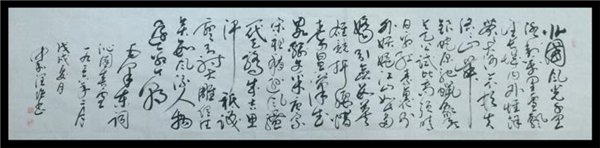 北國风光千里
冰封万里雪飘
望长城内外惟馀
莽莽大河上下顿失
滔滔山舞
银蛇原驰蜡象欲与
天公试比高须晴
日看红装素裹分
外妖娆江山如此多
娇引无数英
雄竞折腰惜
秦皇汉武
略输文采唐宗
宋祖稍逊风骚
一代天骄成吉思
汗祇識
弯弓射大雕俱往
矣数风流人物
还看今朝
毛泽东词
沁园春雪
一九三六年二月
戊戌夏月